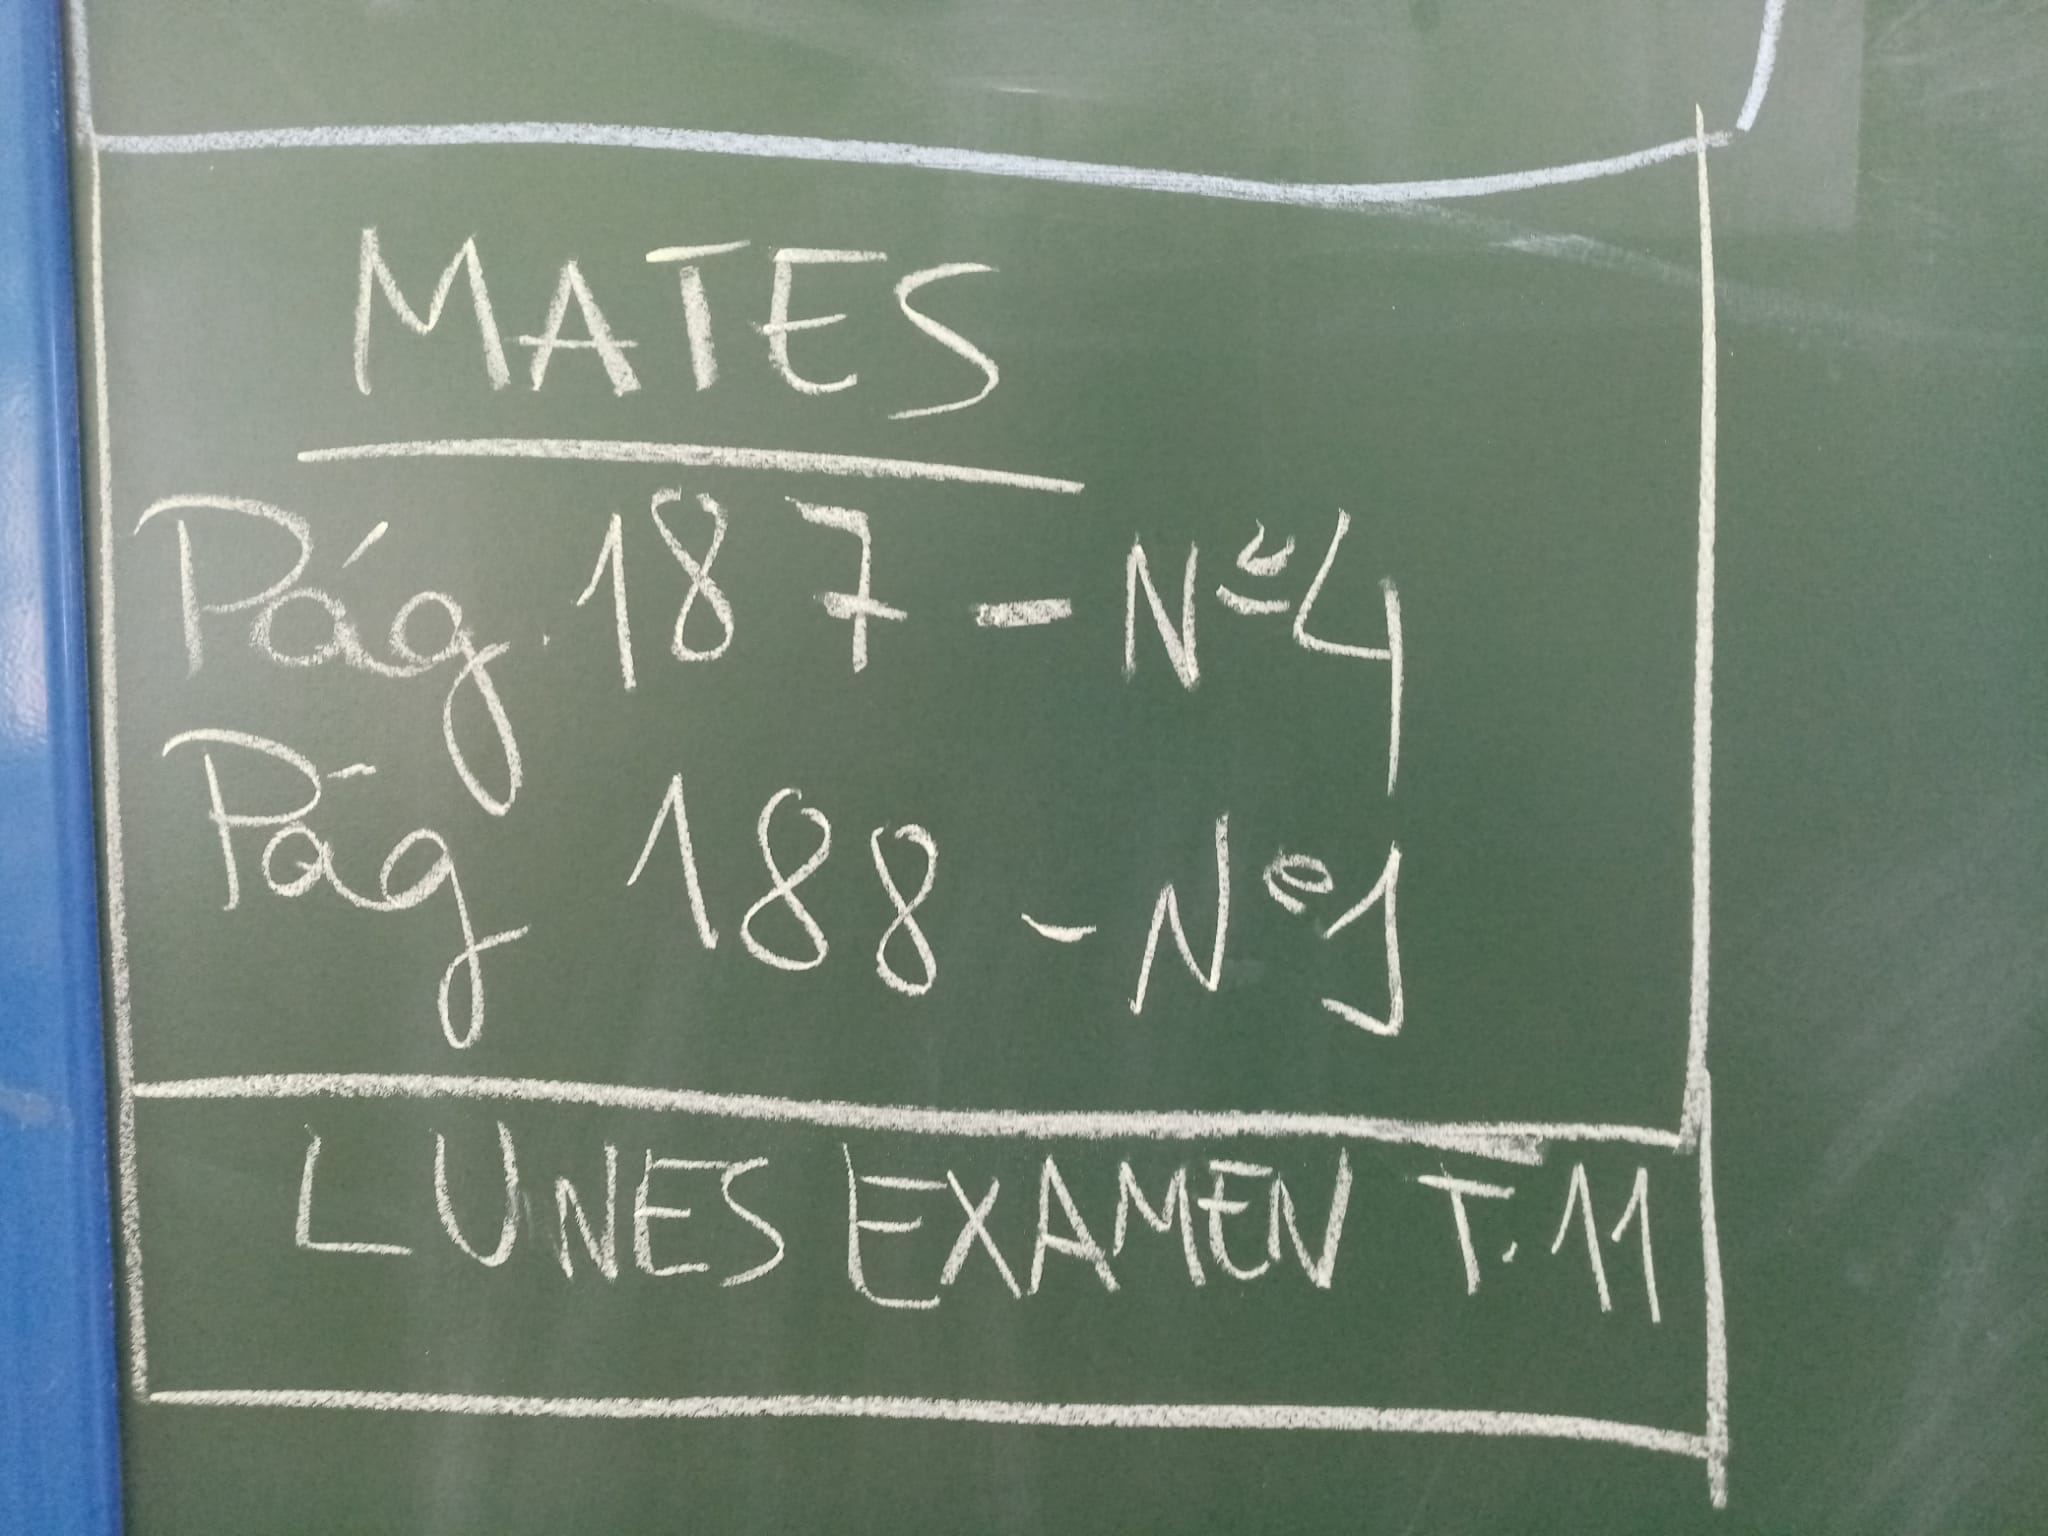 MATES
Pág. 187 - Nº 4
Pág 188 - Nº 1
LUNES EXAMEN T. 11